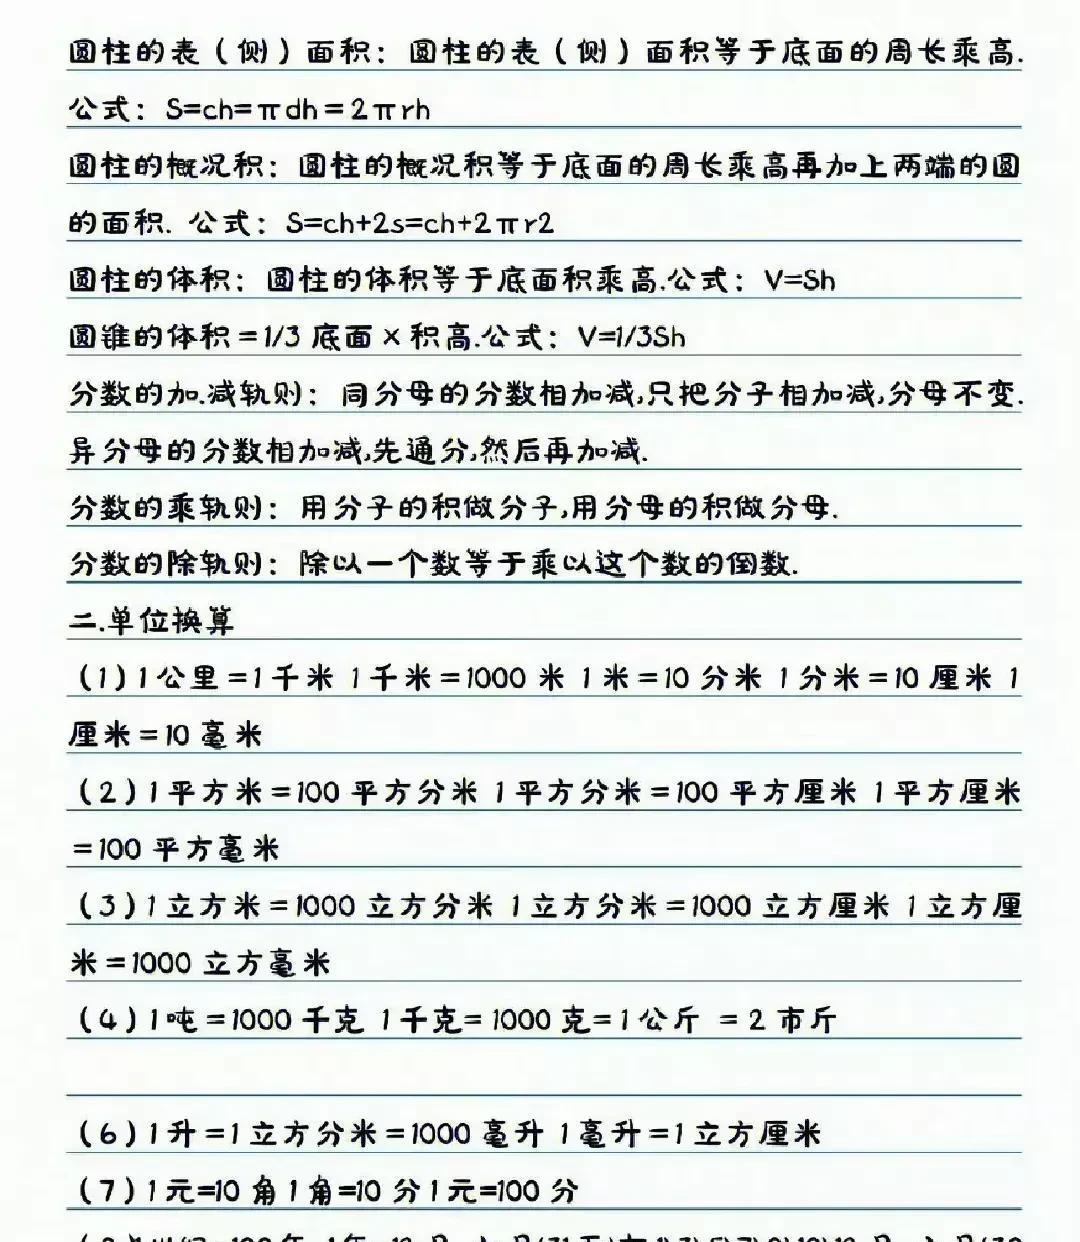 圆柱的表（侧）面积：圆柱的表（侧）面积等于底面的周长乘高.
公式：S=ch=πdh=2πrh
圆柱的概况积：圆柱的概况积等于底面的周长乘高再加上两端的圆
的面积. 公式：S=ch+2s=ch+2πr2
圆柱的体积：圆柱的体积等于底面积乘高.公式：V=Sh
圆锥的体积=1/3 底面×积高.公式：V=1/3Sh
分数的加.减轨则：同分母的分数相加减,只把分子相加减,分母不变.
异分母的分数相加减,先通分,然后再加减.
分数的乘轨则：用分子的积做分子,用分母的积做分母.
分数的除轨则：除以一个数等于乘以这个数的倒数.
二.单位换算
（1）1公里=1千米 1千米=1000 米 1米=10 分米 1分米=10 厘米 1
厘米=10 毫米
（2）1平方米=100 平方分米 1平方分米=100 平方厘米 1平方厘米
=100 平方毫米
（3）1立方米=1000 立方分米 1立方分米=1000 立方厘米 1立方厘
米=1000 立方毫米
（4）1吨=1000 千克 1千克= 1000 克= 1公斤 = 2 市斤
（6）1升=1立方分米=1000 毫升 1毫升=1立方厘米
（7）1元=10 角1角=10 分1元=100 分